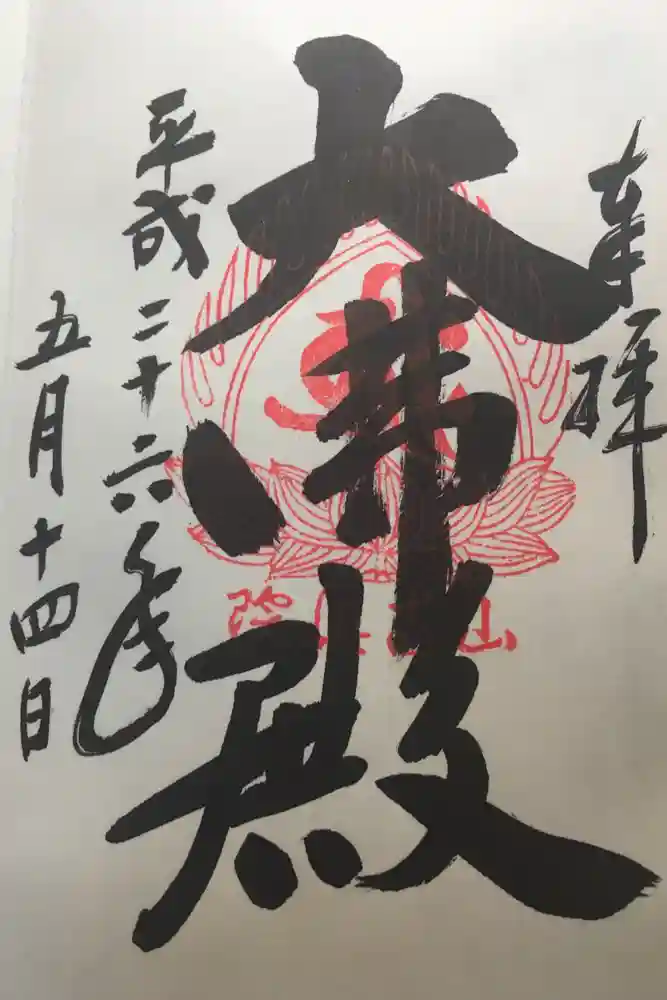 奉拝
大師殿
平成二十六年
五月十四日